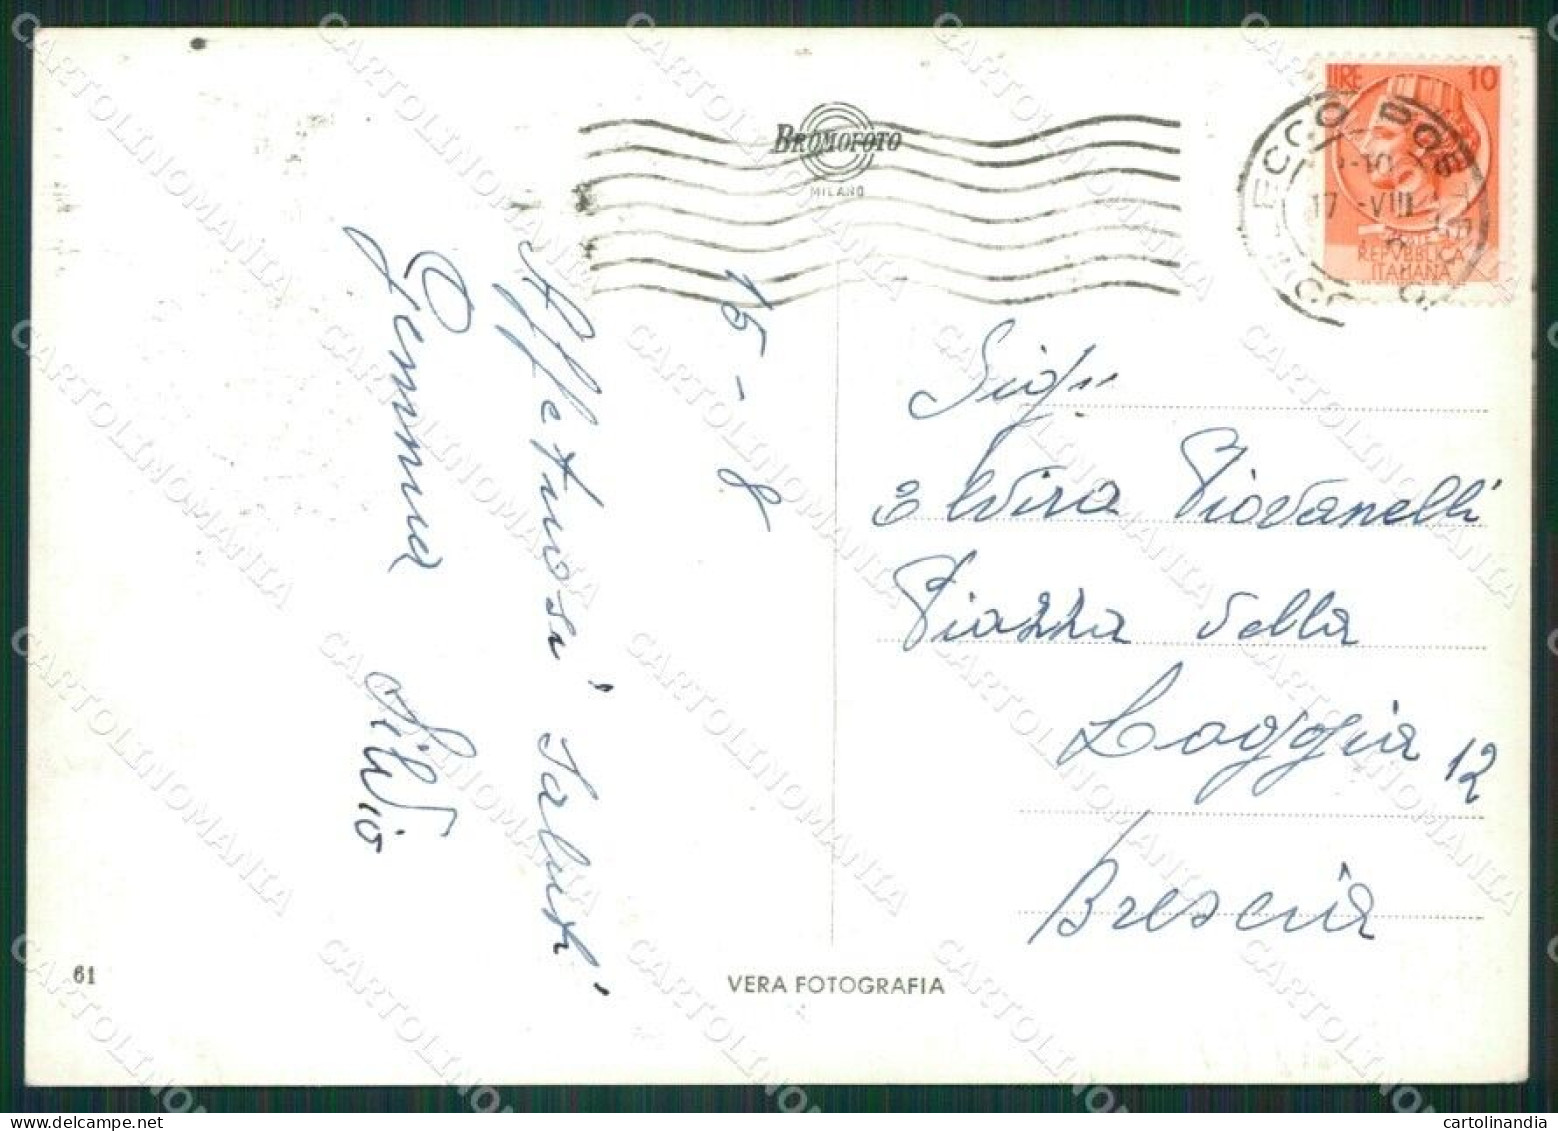 BROMOFOTO
MILANO
LIRE 10
REPVBBLICA
ITALIANA
17 -VIII
15-8
Affettuosi saluti
Gemma
Silvio
Elvira Piovanelli
Piazza della
Loggia 12
Brescia
61
VERA FOTOGRAFIA
CARTOLINOMANIA
cartolinandia